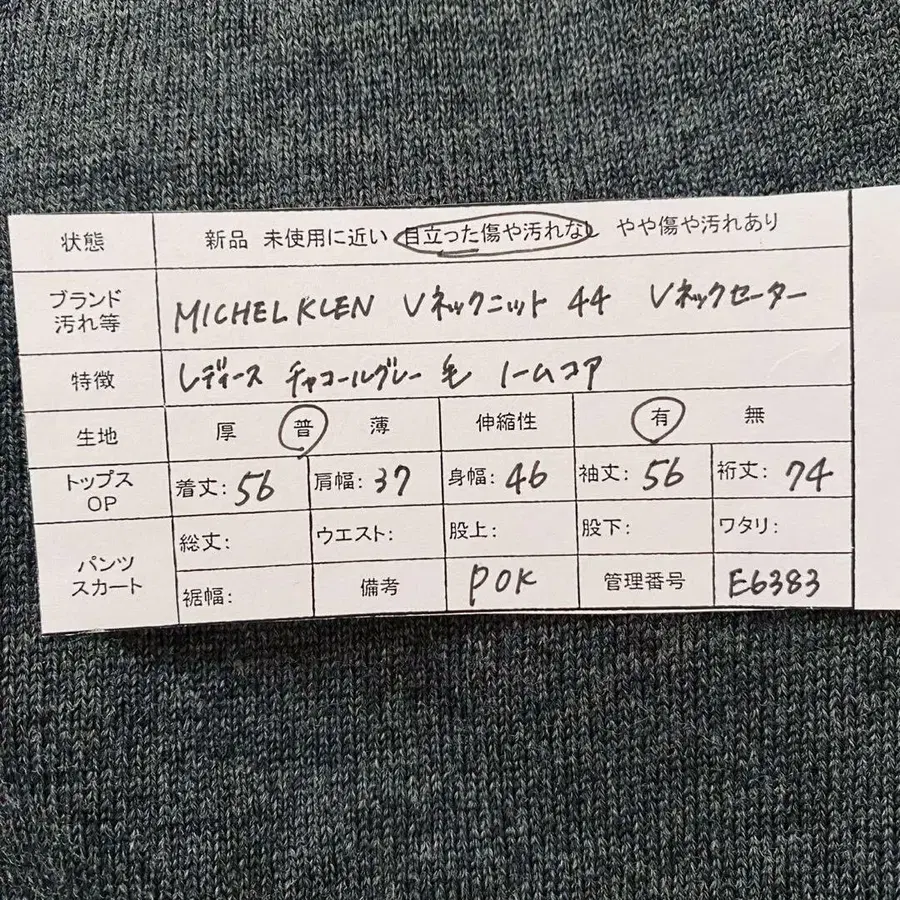 状態 新品 未使用に近い 目立った傷や汚れなし やや傷や汚れあり
ブランド
汚れ等 MICHEL KLEN Vネックニット 44 Vネックセーター
特徴 レディース チャコールグレー 毛 ノームコア
生地 厚 普 薄 伸縮性 有 無
トップス
OP 着丈: 56 肩幅: 37 身幅: 46 袖丈: 56 裄丈: 74
パンツ
スカート 総丈: ウエスト: 股上: 股下: ワタリ:
裾幅: 備考 POK 管理番号 E6383